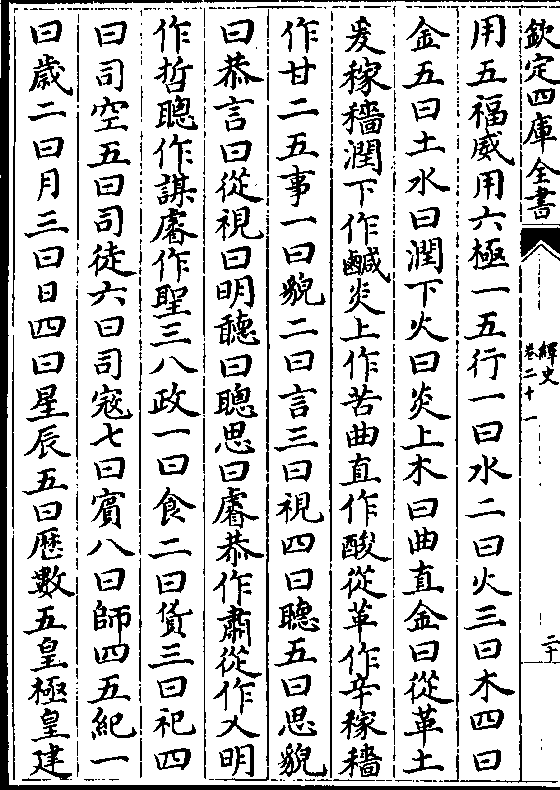 欽定四庫全書
繹史
卷二十一
二十
用五福威用六極一五行一曰水二曰火三曰木四曰
金五曰土水曰潤下火曰炎上木曰曲直金曰從革土
爰稼穡潤下作鹹炎上作苦曲直作酸從革作辛稼穡
作甘二五事一曰貌二曰言三曰視四曰聽五曰思貌
曰恭言曰從視曰明聽曰聰思曰睿恭作肅從作乂明
作哲聰作謀睿作聖三八政一曰食二曰貨三曰祀四
曰司空五曰司徒六曰司寇七曰賓八曰師四五紀一
曰歲二曰月三曰日四曰星辰五曰歷數五皇極皇建